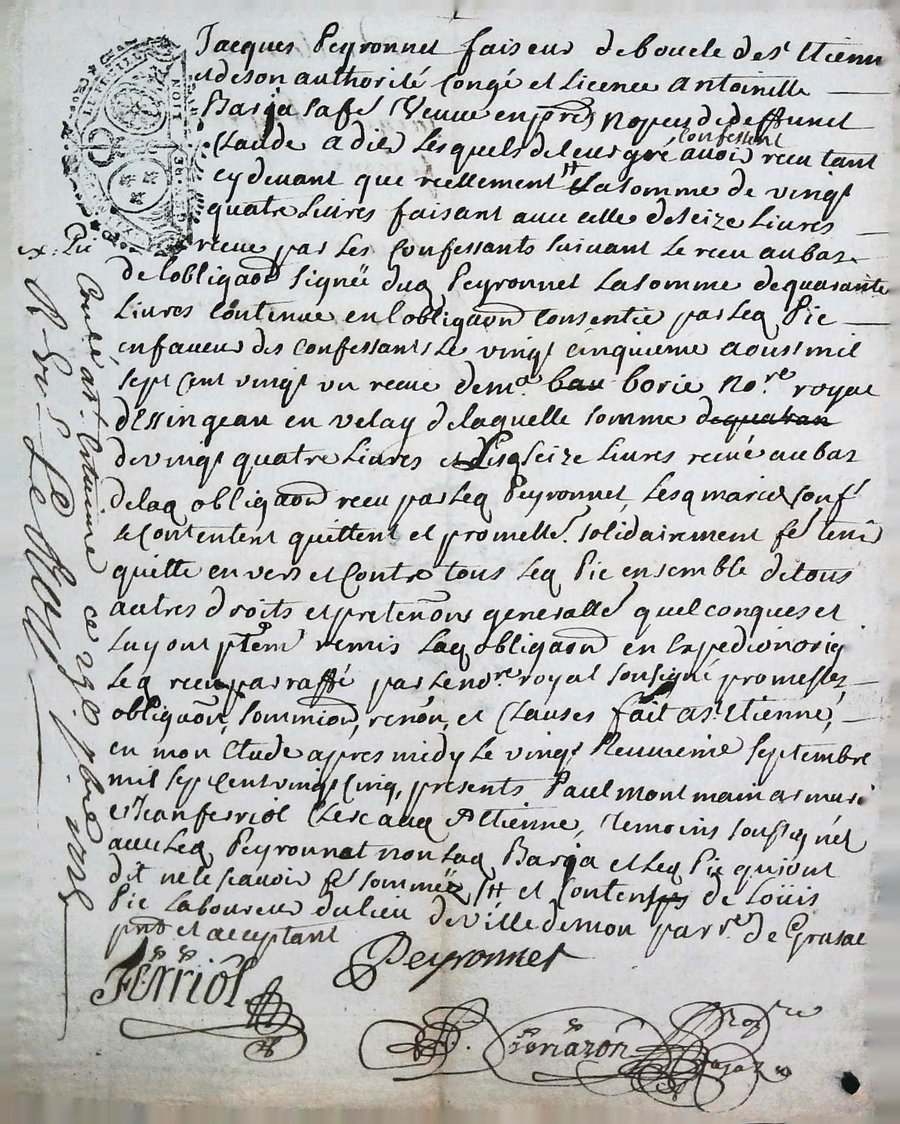 Jacques Peyronnet faiseur de boucle de St Etienne
et de son authorité Congé et Licence Antoinette
Barja sa fe Veuve en pres nopces de deffunct
Claude Adier Lesquels de leur gré confessent avoir receu tant
cy devant que reellement La somme de vingt
quatre Livres faisant avec celle de seize Livres
receue par Les Confessants suivant Le receu au bas
de Lobligaon signée dud Peyronnet La somme de quarante
Livres Contenue en Lobligaon Consentie par Led Pic
en faveur des Confessants Le vingt cinquieme aoust mil
sept Cent vingt un receue de me bau borie nore royal
dEssingeau en velay de laquelle somme de quaran
de vingt quatre Livres et seize Livres receue au bas
de lad obligaon receu par Led Peyronnet, Lesd mariés Conf
se Contentent quittent et promettt solidairement fe tenir
quitte envers et Contre tous Led Pic ensemble de tous
autres droits et pretentions generalle quelconques et
Luy ont pntem remis Lad obligaon en Expedion orig
Led receu par raffé par Le nore royal soussigné promesses
obligaon, soumnion, renon, et Clauses fait a St Etienne,
en mon Etude apres midy Le vingt Neuvieme septembre
mil sept Cent vingt Cinq, presents Paul montmain armuri
et Jean ferriol Clerc aud St Etienne, temoins soussignés
avec Led Peyronnet non Lad Barja et Led Pic qui ont
dit ne le scavoir fe sommés et Content de Loüis
Pic Laboureur du lieu de Villedemon parse de Grasac
pnt et acceptant
Ferriol
Peyronnet
Tenazon
nore
royal
ex. Pic
Conllé a St Estienne ce 29e 7bre 1725
R